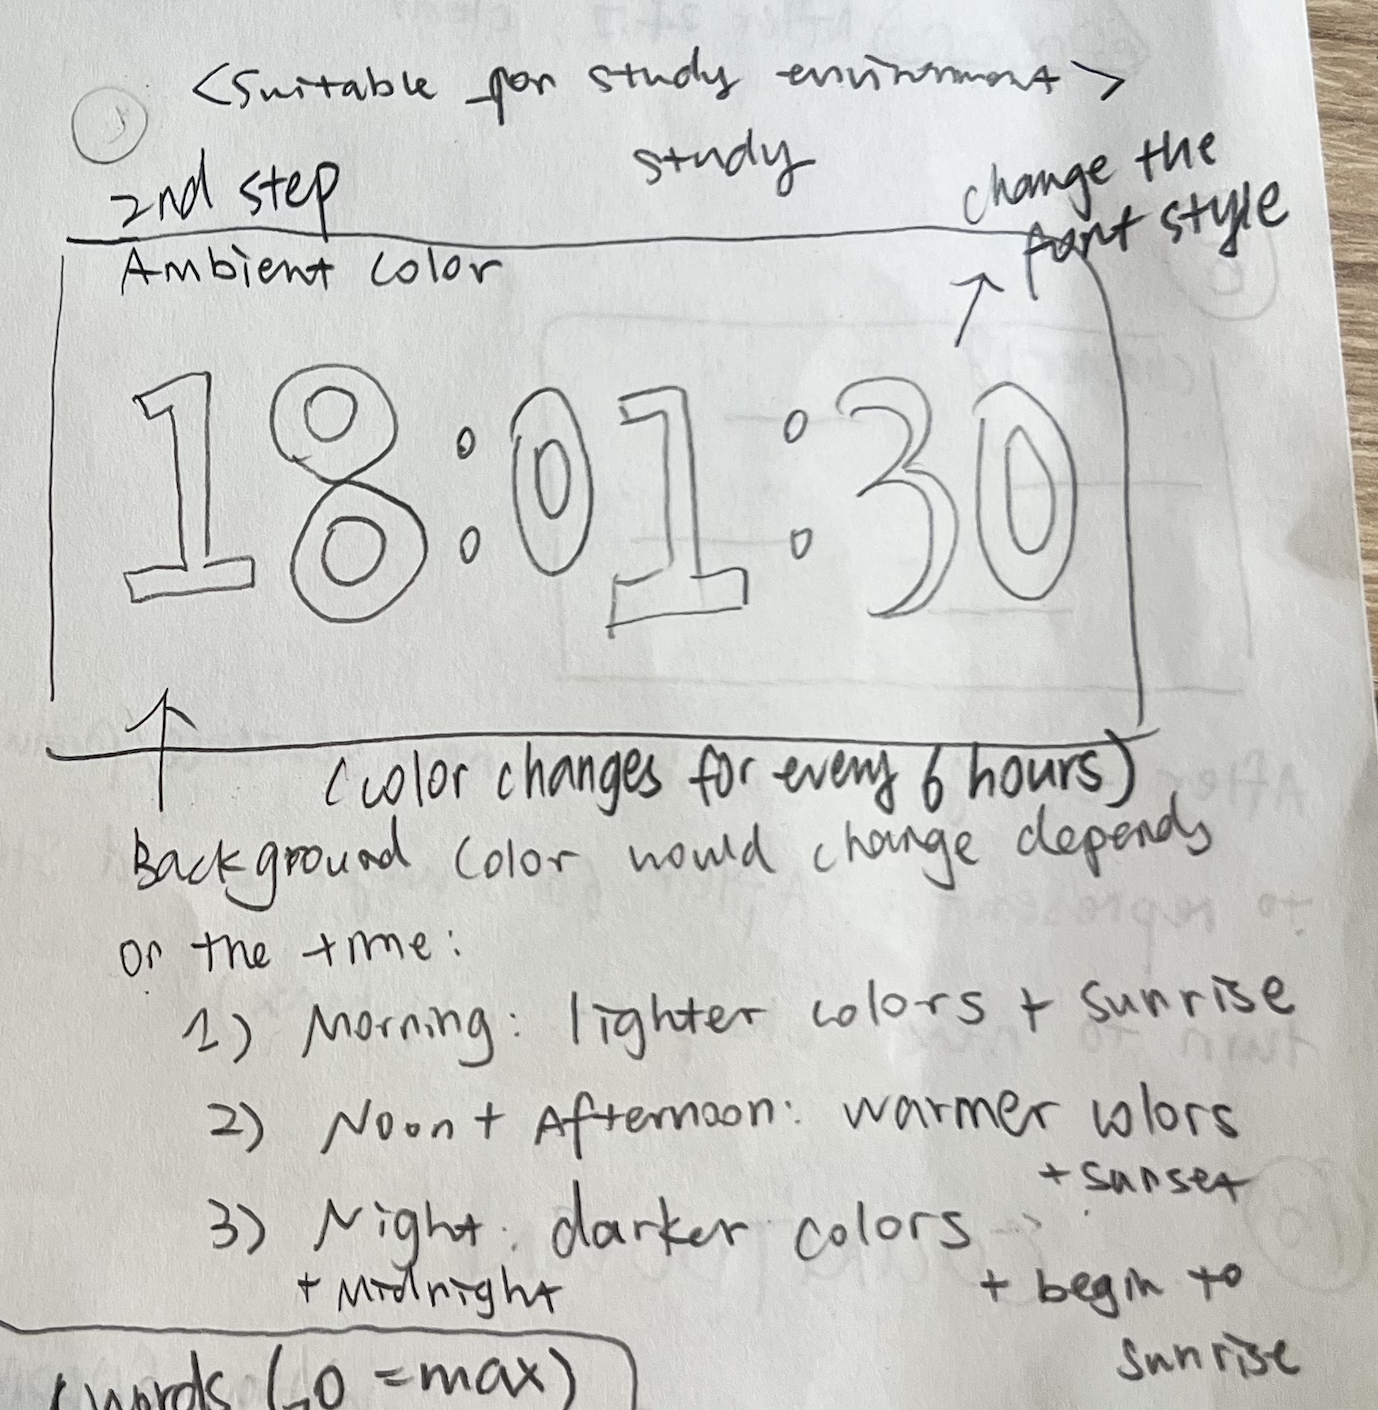 <Suitable for study environment>
study
2nd step
change the
font style
Ambient color
18:01:30
(color changes for every 6 hours)
Background color would change depends
on the time:
1) Morning: lighter colors + sunrise
2) Noon + Afternoon: warmer colors
+ sunset
3) Night: darker colors
+ Midnight
+ begin to
sunrise
words ( = max)